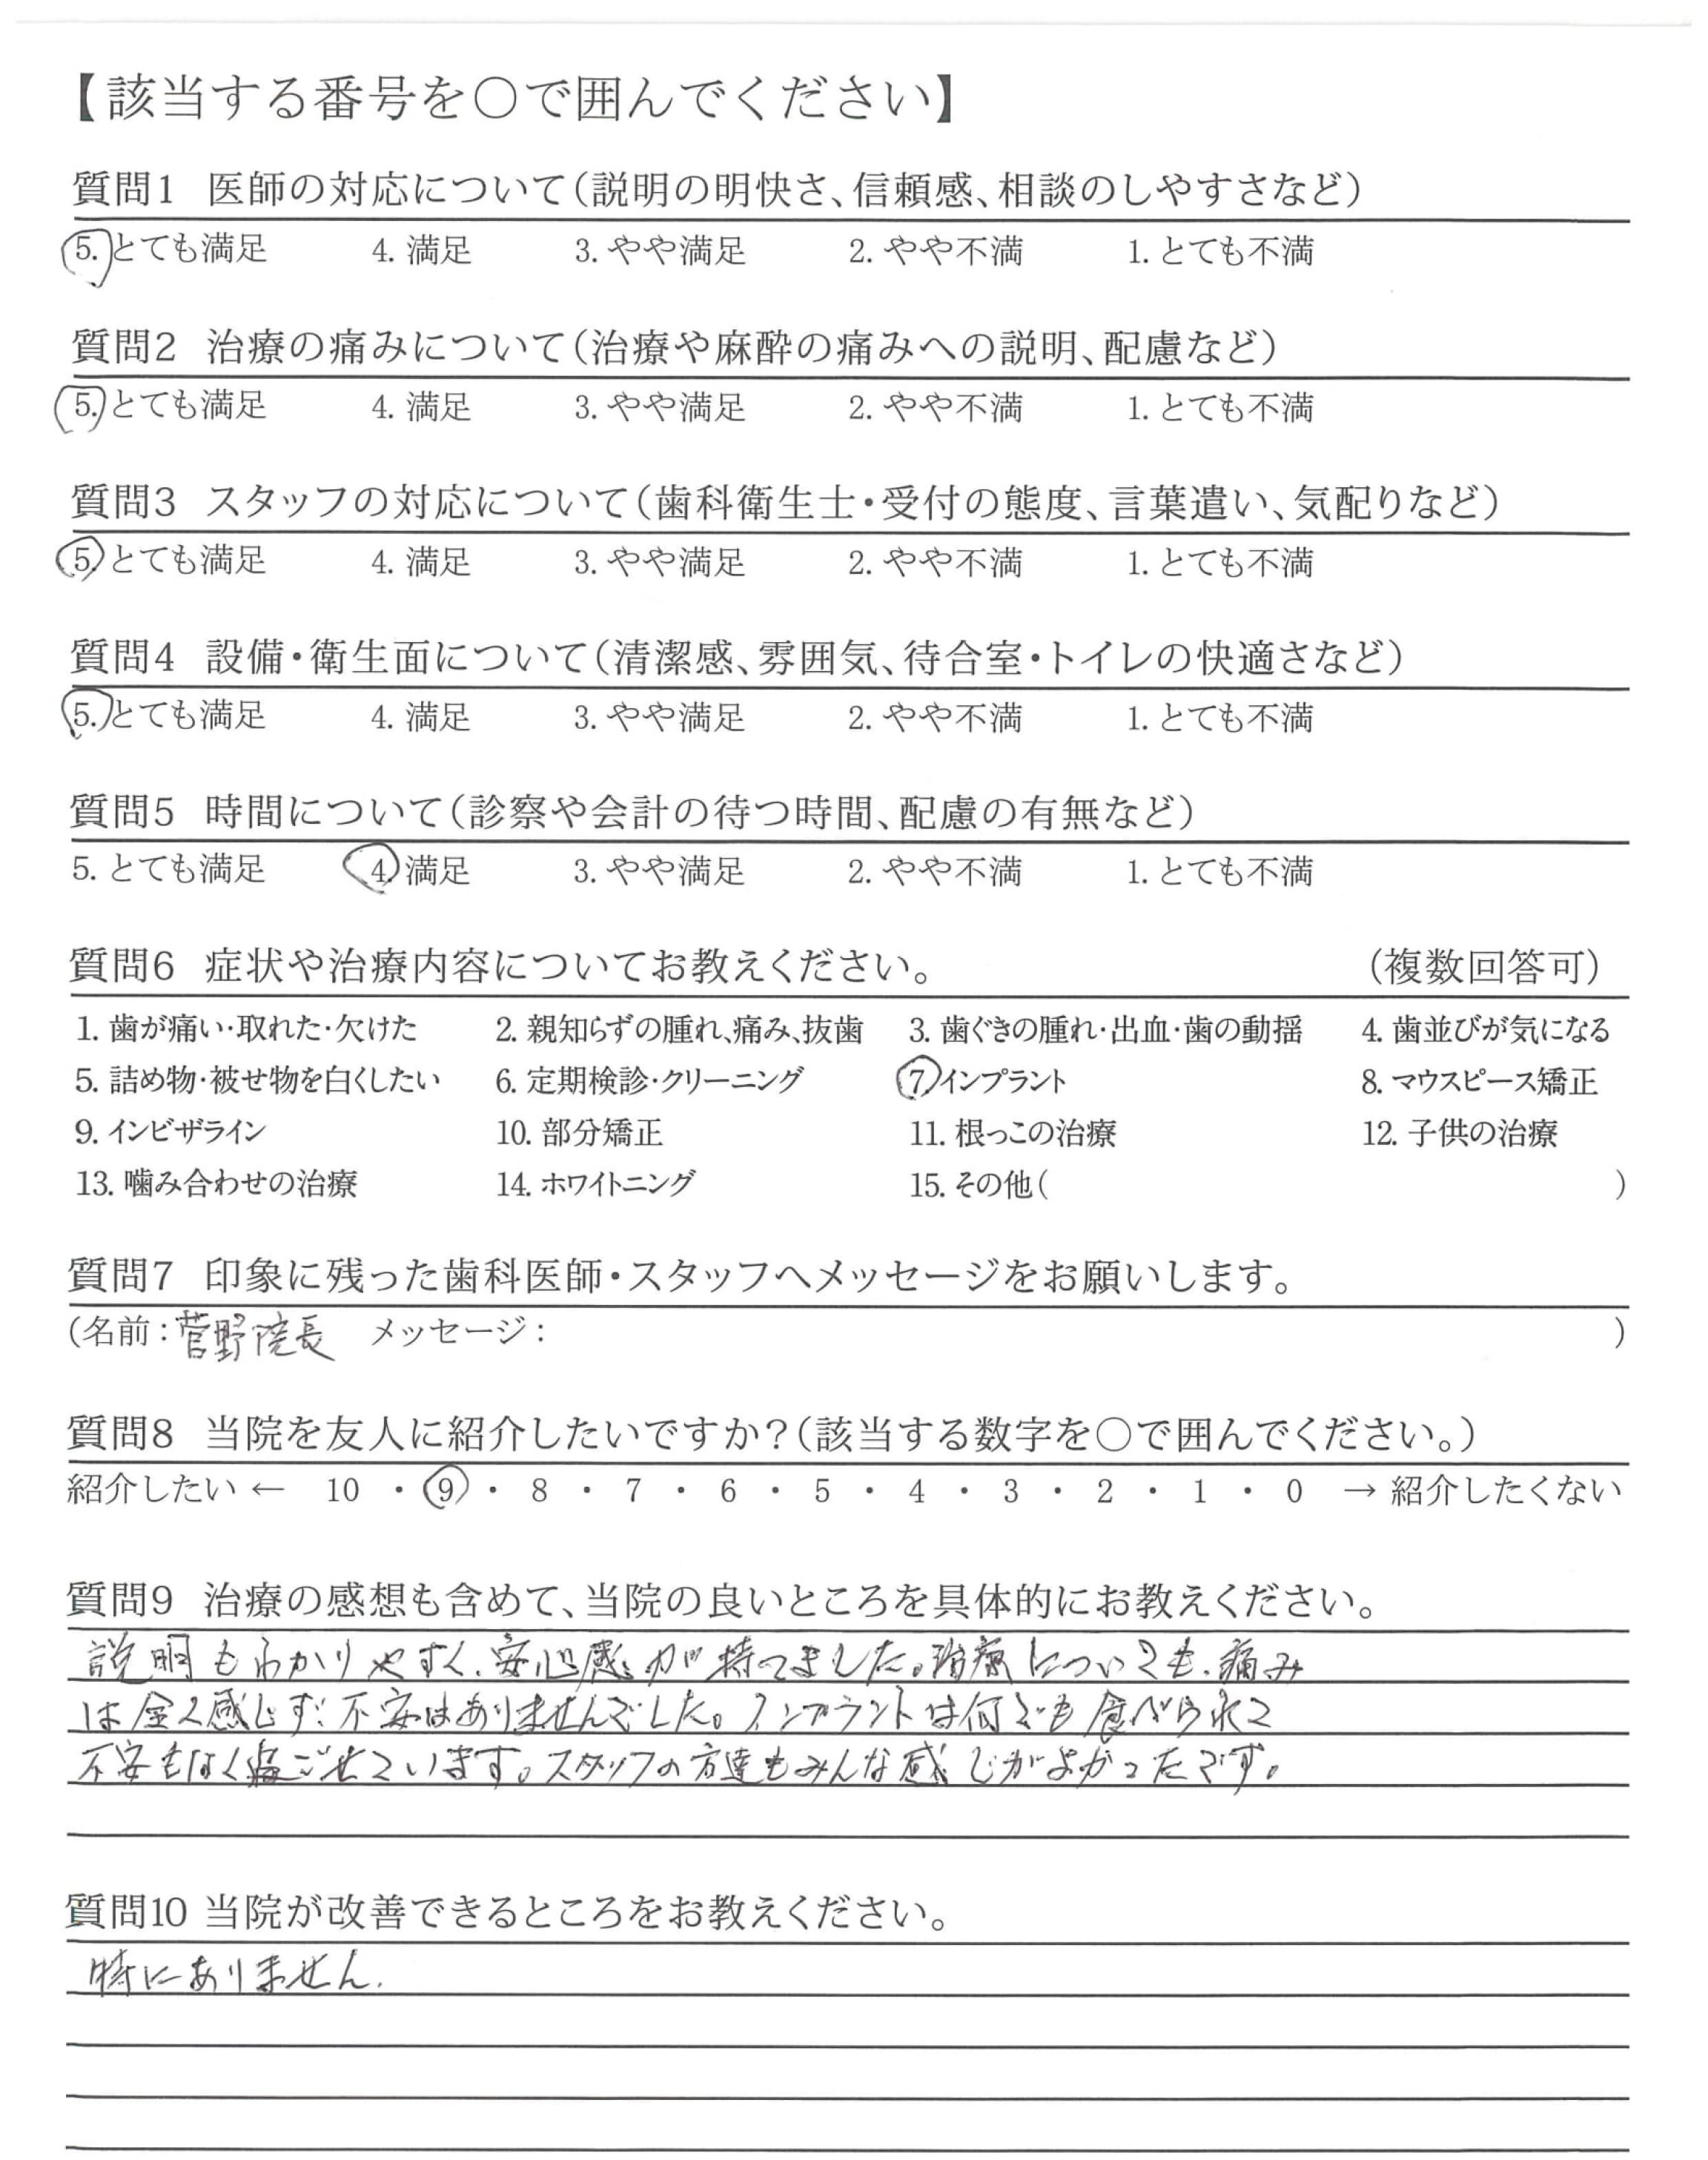 【該当する番号を○で囲んでください】
質問1 医師の対応について(説明の明快さ、信頼感、相談のしやすさなど)
5. とても満足 4. 満足 3. やや満足 2. やや不満 1. とても不満
質問2 治療の痛みについて(治療や麻酔の痛みへの説明、配慮など)
5. とても満足 4. 満足 3. やや満足 2. やや不満 1. とても不満
質問3 スタッフの対応について(歯科衛生士・受付の態度、言葉遣い、気配りなど)
5. とても満足 4. 満足 3. やや満足 2. やや不満 1. とても不満
質問4 設備・衛生面について(清潔感、雰囲気、待合室・トイレの快適さなど)
5. とても満足 4. 満足 3. やや満足 2. やや不満 1. とても不満
質問5 時間について(診察や会計の待つ時間、配慮の有無など)
5. とても満足 4. 満足 3. やや満足 2. やや不満 1. とても不満
質問6 症状や治療内容についてお教えください。 (複数回答可)
1. 歯が痛い・取れた・欠けた 2. 親知らずの腫れ、痛み、抜歯 3. 歯ぐきの腫れ・出血・歯の動揺 4. 歯並びが気になる
5. 詰め物・被せ物を白くしたい 6. 定期検診・クリーニング 7. インプラント 8. マウスピース矯正
9. インビザライン 10. 部分矯正 11. 根っこの治療 12. 子供の治療
13. 噛み合わせの治療 14. ホワイトニング 15. その他( )
質問7 印象に残った歯科医師・スタッフへメッセージをお願いします。
(名前:菅野院長 メッセージ: )
質問8 当院を友人に紹介したいですか?(該当する数字を○で囲んでください。)
紹介したい ← 10 ・ 9 ・ 8 ・ 7 ・ 6 ・ 5 ・ 4 ・ 3 ・ 2 ・ 1 ・ 0 → 紹介したくない
質問9 治療の感想も含めて、当院の良いところを具体的にお教えください。
説明もわかりやすく、安心感が持てました。治療についても、痛み
は全く感じず、不安はありませんでした。インプラントは何でも食べられて
不安もなく過ごせています。スタッフの方達もみんな感じがよかったです。
質問10 当院が改善できるところをお教えください。
特にありません.